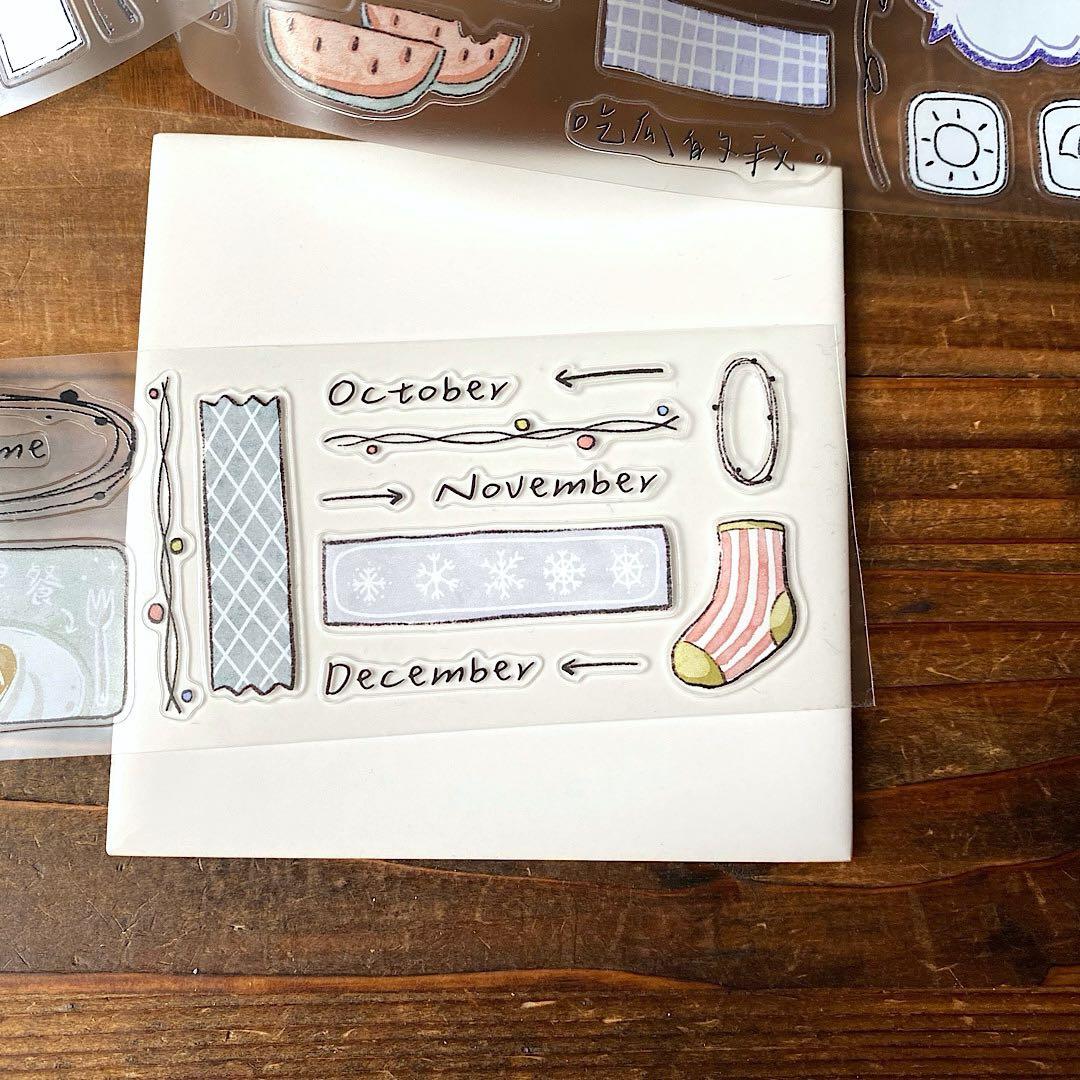 吃瓜的我
October
November
me
餐
December